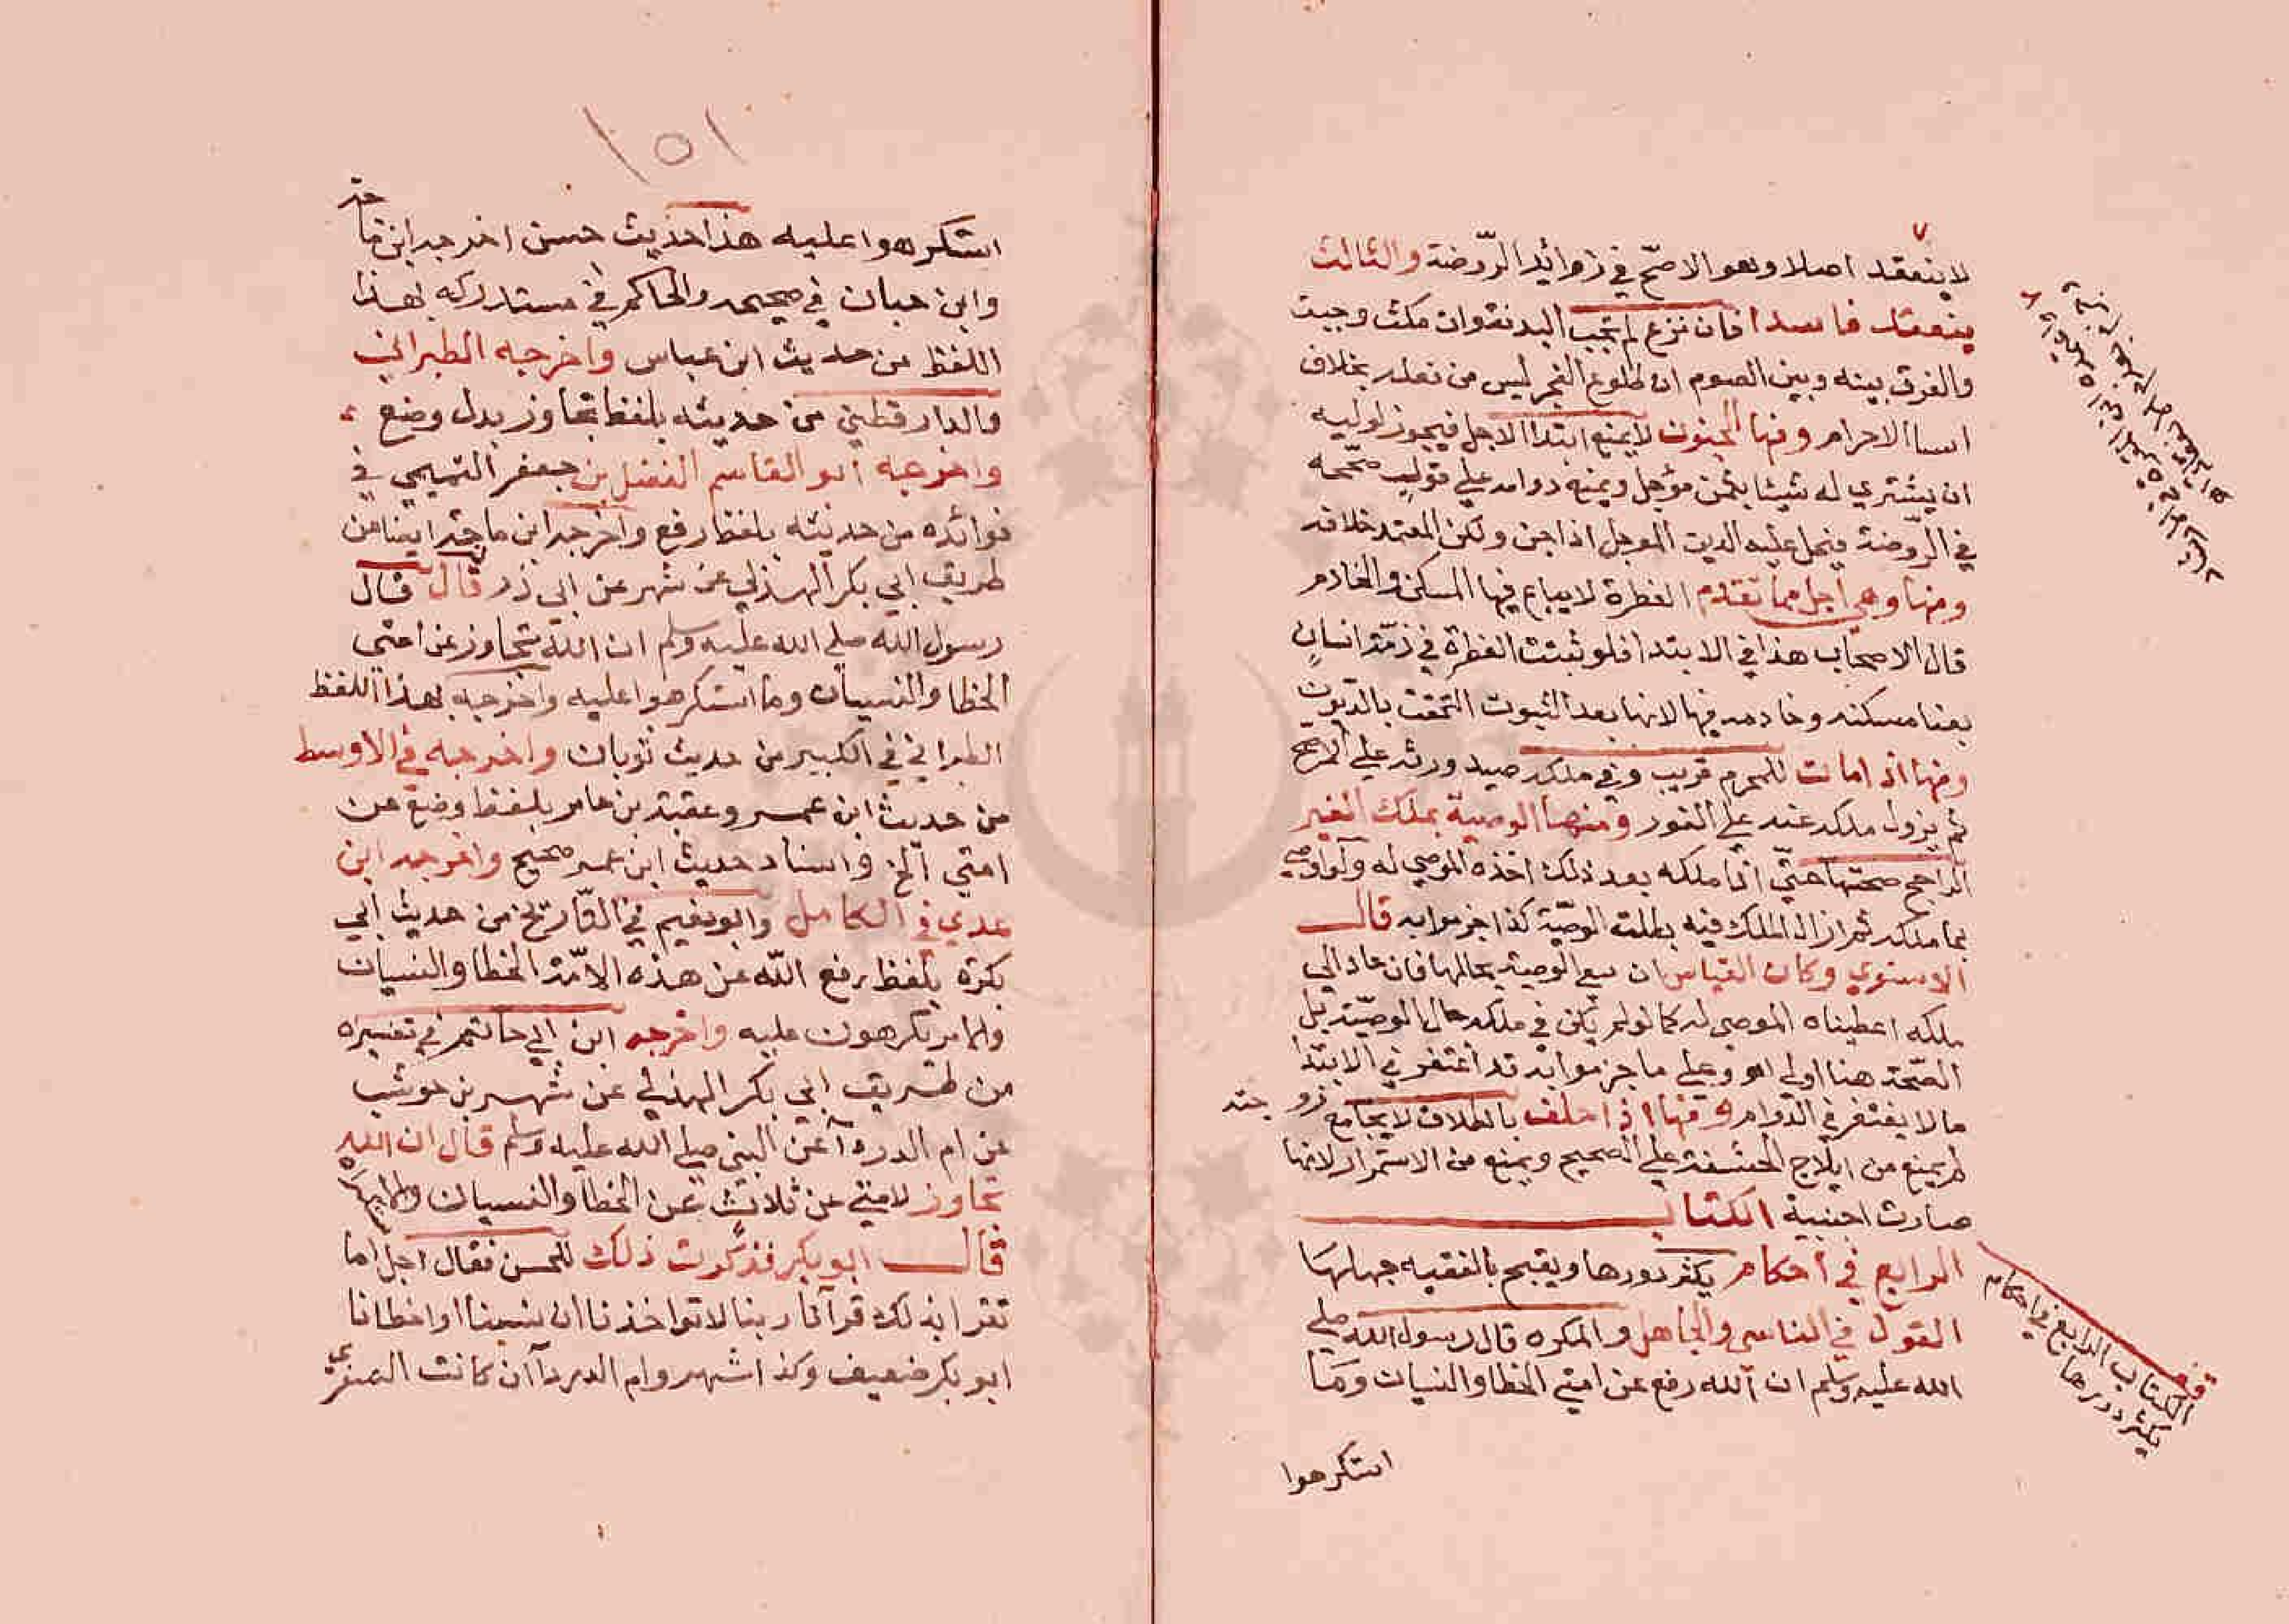 لا ينعقد اصلا وهو الاصحّ في زوائد الرّوضة والثالث
ينعقد فاسدا فان نزع لم تجب البدنة وان مكث وجبت
والفرق بينه وبين الصوم ان طلوع الفجر ليس من فعله بخلاف
انشا الاحرام ومنها الجنون لا يمنع ابتدا الاجل فيجوز لوليه
ان يشتري له شيئا بثمن مؤجل ويمنع دوامه علي قول صححه
في الرّوضة فيحل عليه الدين الموجل اذا جن ولكن المعتمد خلافه
ومنها وهي اجل مما تقدم الفطرة لا يباع فيها المسكن والخادم
قال الاصحاب هذا في الابتدا فلو ثبتت الفطرة في ذمّة انسان
بعنا مسكنه وخادمه فيها لانها بعد الثبوت التحقت بالديون
ومنها اذا مات للمحرم قريب وفي ملكه صيد ورثه علي الاصح
ثم يزول ملكه عنه علي الفور ومنها الوصية بملك الغير
الراجح صحتها حتّي اذا ملكه بعد ذلك اخذه الموصي له ولو اوصي
بما ملكه ثم ازال الملك فيه بطلت الوصيّة كذا جزموا به قال
الاسنوي وكان القياس ان تبقي الوصية بحالها فان عاد الي
ملكه اعطيناه الموصي له كما لو لم يكن في ملكه حال الوصيّة بل
الصّحة هنا اولي وعلي ما جزموا به قد اغتفر في الابتدا
ما لا يغتفر في الدوام ومنها اذا حلف بالطلاق لا يجامع زوجته
لم يمنع من ايلاج الحشفة علي الصحيح ويمنع من الاستمرار لانها
صارت اجنبية الكتاب
الرابع في احكام يكثر دورها ويقبح بالفقيه جهلها
القول في الناسي والجاهل والمكره قال رسول الله صلي
الله عليه وسلم ان الله رفع عن امتي الخطا والنسيان وما
استكرهوا
قف
الكتاب الرابع في احكام
يكثر دورها
١٥١
استكرهوا عليه هذا حديث حسن اخرجه ابن ماجه
وابن حبان في صحيحه والحاكم في مستدركه بهذا
اللفظ من حديث ابن عباس واخرجه الطبراني
والدارقطني من حديثه بلفظ تجاوز بدل وضع
واخرجه ابو القاسم الفضل بن جعفر التميمي في
فوائده من حديثه بلفظ رفع واخرجه ابن ماجه ايضا من
طريق ابي بكر الهذلي عن شهر عن ابي ذر قال قال
رسول الله صلي الله عليه وسلم ان الله تجاوز عن امتي
الخطا والنسيان وما استكرهوا عليه واخرجه بهذا اللفظ
الطبراني في الكبير من حديث ثوبان واخرجه في الاوسط
من حديث ابن عمر وعقبة بن عامر بلفظ وضع عن
امتي الخ واسناد حديث ابن عمر صحيح واخرجه ابن
عدي في الكامل وابو نعيم في التاريخ من حديث ابي
بكرة بلفظ رفع الله عن هذه الامّة الخطا والنسيان
والامر يكرهون عليه واخرجه ابن ابي حاتم في تفسيره
من طريق ابي بكر الهذلي عن شهر بن حوشب
عن ام الدردآ عن النبي صلي الله عليه وسلم قال ان الله
تجاوز لامتي عن ثلاث عن الخطا والنسيان والاكراه
قال ابو بكر فذكرت ذلك للحسن فقال اجل اما
تقرا بذلك قرآنا ربنا لا تواخذنا ان نسينا او اخطانا
ابو بكر ضعيف وكذا شهر وام الدردآ ان كانت الصغري